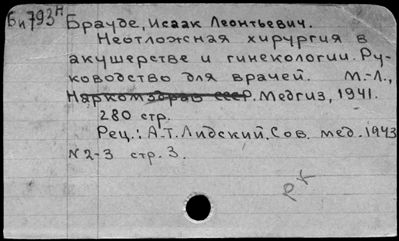 Би793н Брауде, Исаак Леонтьевич.
Неотложная хирургия в
акушерстве и гинекологии. Ру-
ководство для врачей. М.-Л.,
Наркомздрав СССР. Медгиз, 1941.
280 стр.
Рец.: А.Т. Лидский. Сов. мед. 1943
N 2-3 стр. 3.
РК